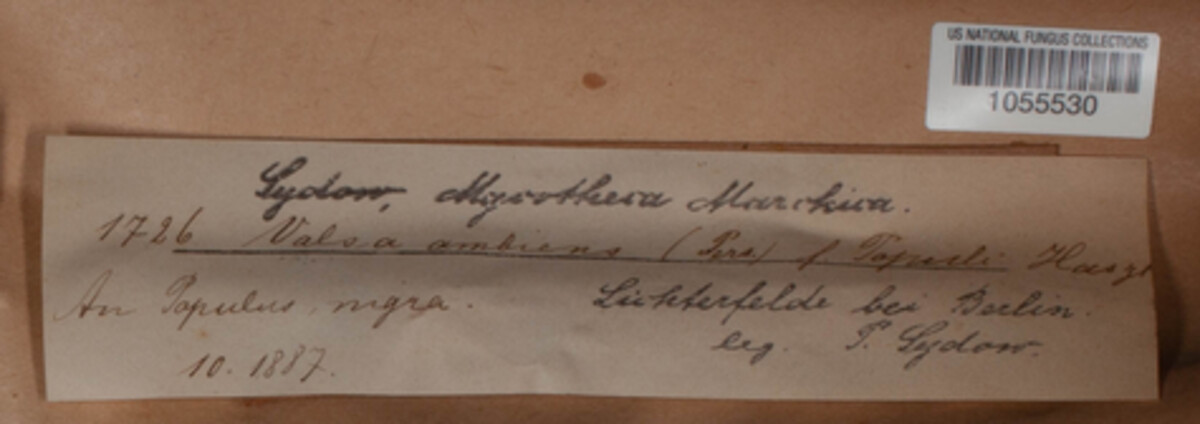 US NATIONAL FUNGUS COLLECTIONS
1055530
Sydow, Mycotheca Marchica.
1726 Valsa ambiens (Pers.) f. Populi Hazsl
An Populus nigra.
Lichterfelde bei Berlin.
leg. P. Sydow.
10. 1887.